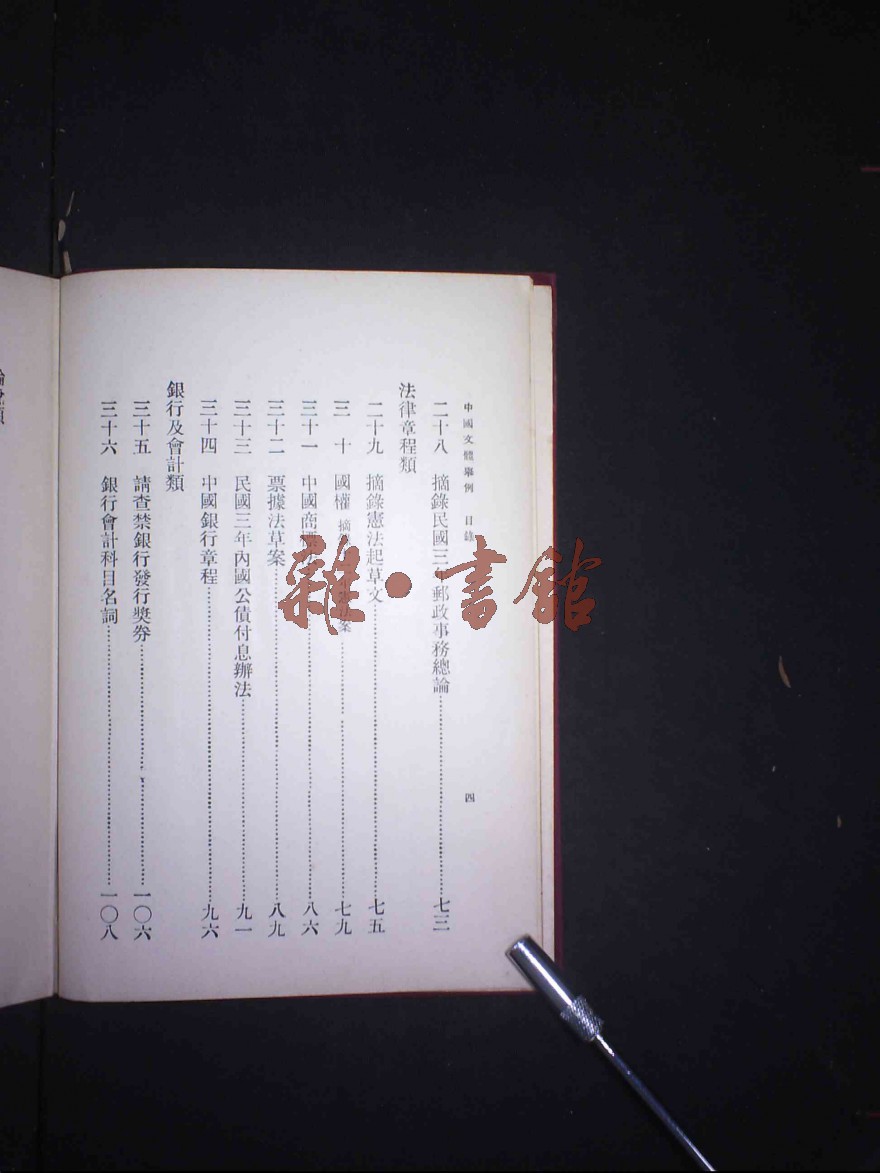 中國文體舉例 目錄 四
二十八 摘錄民國三年郵政事務總論 七三
法律章程類
二十九 摘錄憲法起草文 七五
三十 國權 摘 案 七九
三十一 中國商標 八六
三十二 票據法草案 八九
三十三 民國三年內國公債付息辦法 九一
三十四 中國銀行章程 九六
銀行及會計類
三十五 請查禁銀行發行獎券 一〇六
三十六 銀行會計科目名詞 一〇八
雜·書館